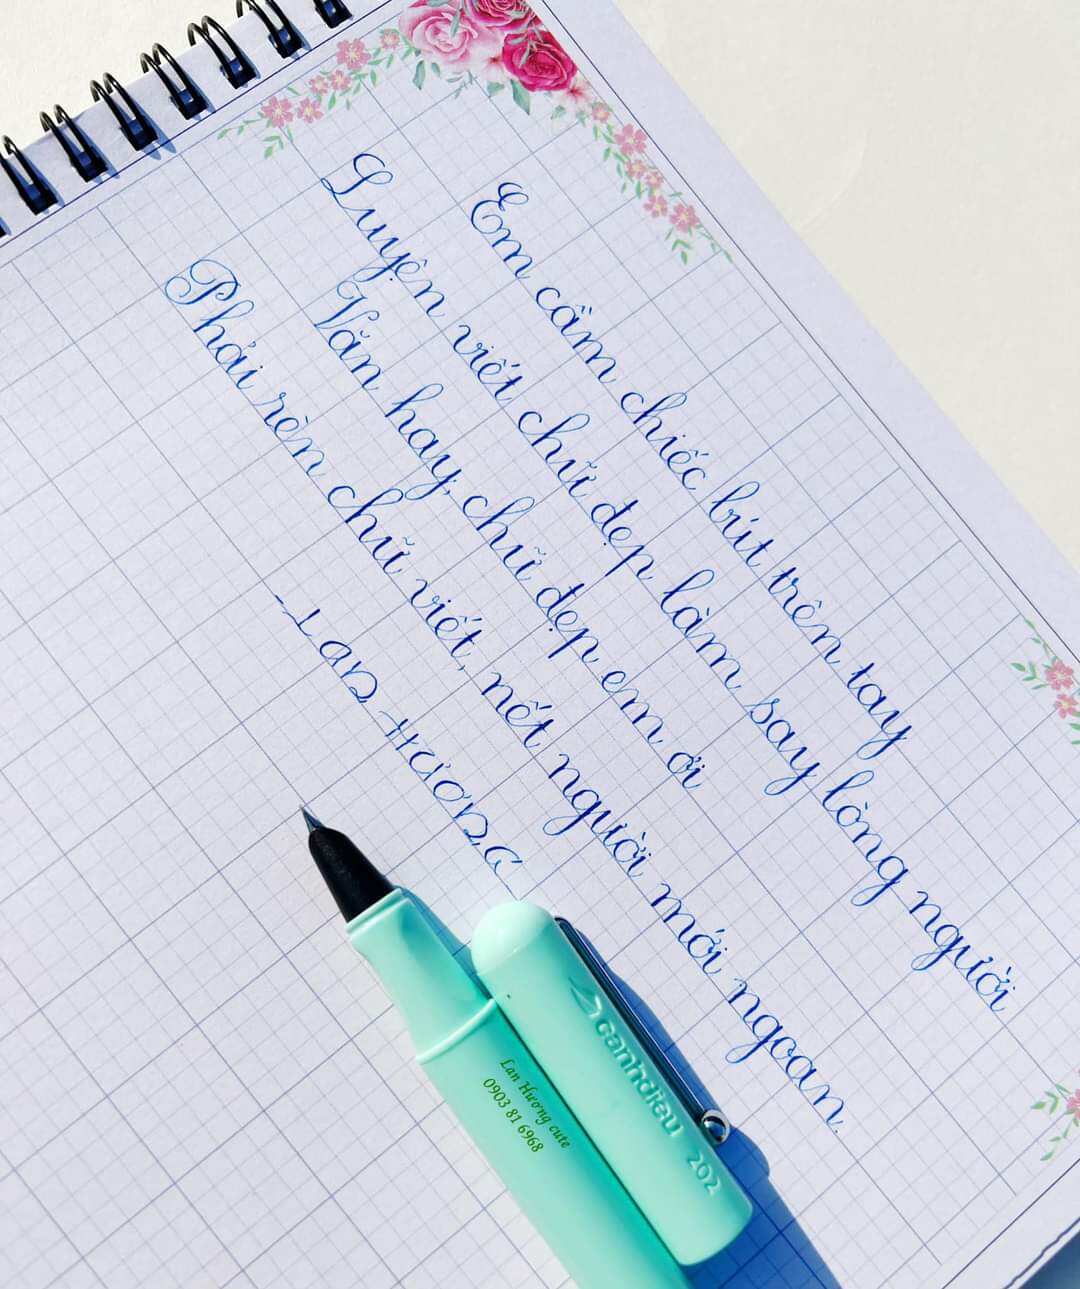 Em cầm chiếc bút trên tay
Luyện viết chữ đẹp làm say lòng người
Văn hay, chữ đẹp em ơi
Phải rèn chữ viết, nết người mới ngoan.
- LAN HƯƠNG -
canhdieu 202
Lan Hương cute
0903 81 6968